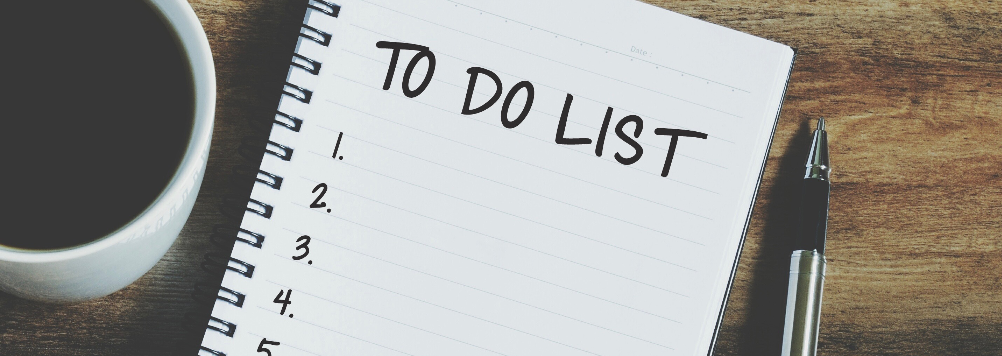 Date
TO DO LIST
1.
2.
3.
4.
5